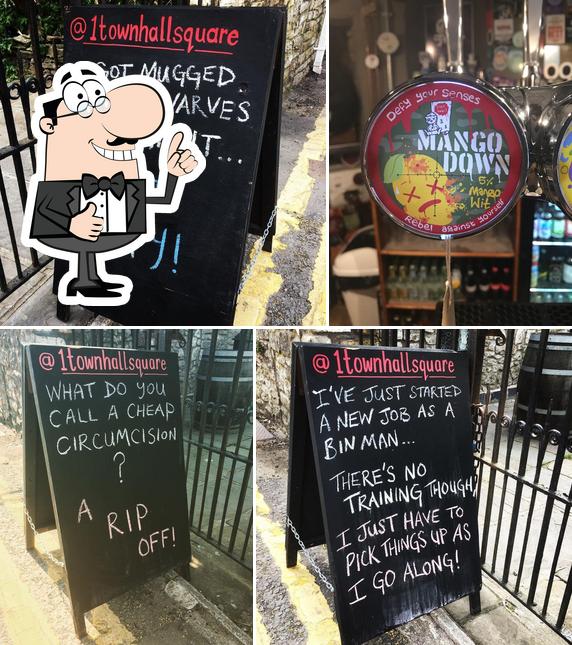 @1townhallsquare
GOT MUGGED
Defy your senses
MANGO
DOWN
5%
Mango
Wit
Rebel against yourself
@1townhallsquare
WHAT DO YOU
CALL A CHEAP
CIRCUMCISION
?
A RIP
OFF!
@1townhallsquare
I'VE JUST STARTED
A NEW JOB AS A
BIN MAN...
THERE'S NO
TRAINING THOUGH,
I JUST HAVE TO
PICK THINGS UP AS
I GO ALONG!